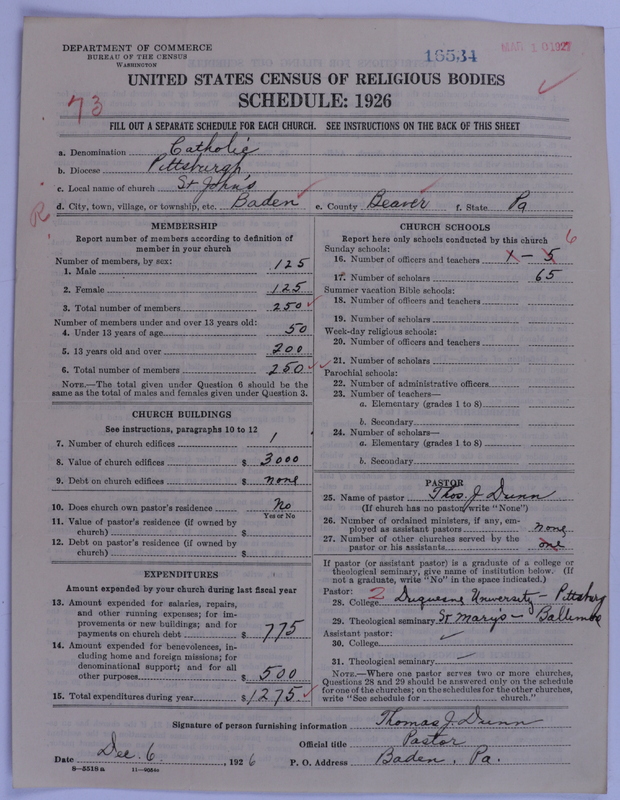 DEPARTMENT OF COMMERCE
BUREAU OF THE CENSUS
WASHINGTON
16534
MAR 10 1927
UNITED STATES CENSUS OF RELIGIOUS BODIES
SCHEDULE: 1926
73
FILL OUT A SEPARATE SCHEDULE FOR EACH CHURCH. SEE INSTRUCTIONS ON THE BACK OF THIS SHEET
a. Denomination Catholic
b. Diocese Pittsburgh
c. Local name of church St John's
d. City, town, village, or township, etc. Baden e. County Beaver f. State Pa
R
MEMBERSHIP
Report number of members according to definition of
member in your church
Number of members, by sex:
1. Male 125
2. Female 125
3. Total number of members 250
Number of members under and over 13 years old:
4. Under 13 years of age 50
5. 13 years old and over 200
6. Total number of members 250
NOTE.—The total given under Question 6 should be the
same as the total of males and females given under Question 3.
CHURCH BUILDINGS
See instructions, paragraphs 10 to 12
7. Number of church edifices 1
8. Value of church edifices $ 3000
9. Debt on church edifices $ none
10. Does church own pastor's residence No
Yes or No
11. Value of pastor's residence (if owned by
church) $
12. Debt on pastor's residence (if owned by
church) $
EXPENDITURES
Amount expended by your church during last fiscal year
13. Amount expended for salaries, repairs,
and other running expenses; for im-
provements or new buildings; and for
payments on church debt $ 775
14. Amount expended for benevolences, in-
cluding home and foreign missions; for
denominational support; and for all
other purposes $ 500
15. Total expenditures during year $ 1275
CHURCH SCHOOLS
Report here only schools conducted by this church 6
Sunday schools:
16. Number of officers and teachers 1 – 5
17. Number of scholars 65
Summer vacation Bible schools:
18. Number of officers and teachers
19. Number of scholars
Week-day religious schools:
20. Number of officers and teachers
21. Number of scholars
Parochial schools:
22. Number of administrative officers
23. Number of teachers—
a. Elementary (grades 1 to 8)
b. Secondary
24. Number of scholars—
a. Elementary (grades 1 to 8)
b. Secondary
PASTOR
25. Name of pastor Thos. J. Dunn
(If church has no pastor, write "None")
26. Number of ordained ministers, if any, em-
ployed as assistant pastors none
27. Number of other churches served by the
pastor or his assistants one
If pastor (or assistant pastor) is a graduate of a college or
theological seminary, give name of institution below. (If
not a graduate, write "No" in the space indicated.)
Pastor: 2
28. College Duquesne University – Pittsburg
29. Theological seminary St Mary's – Baltimore
Assistant pastor:
30. College
31. Theological seminary
NOTE.—Where one pastor serves two or more churches,
Questions 28 and 29 should be answered only on the schedule
for one of the churches; on the schedules for the other churches,
write "See schedule for church."
Signature of person furnishing information Thomas J. Dunn
Official title Pastor
Date Dec. 6, 1926 P. O. Address Baden, Pa.
8—5518 a